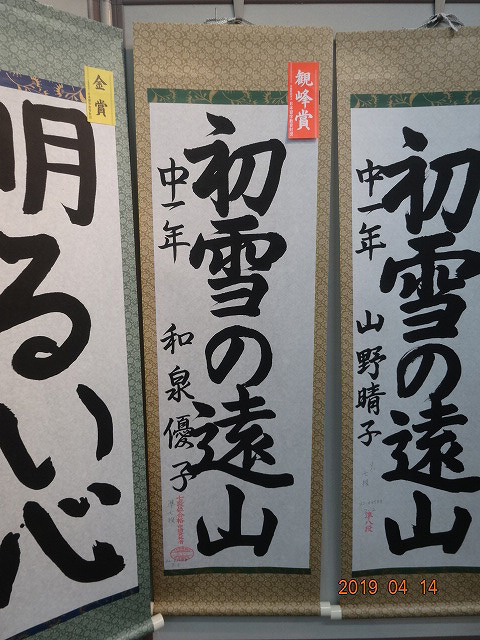 金賞
明るい心
観峰賞
初雪の遠山
中一年
和泉優子
初雪の遠山
中一年
山野晴子
準八段
2019 04 14